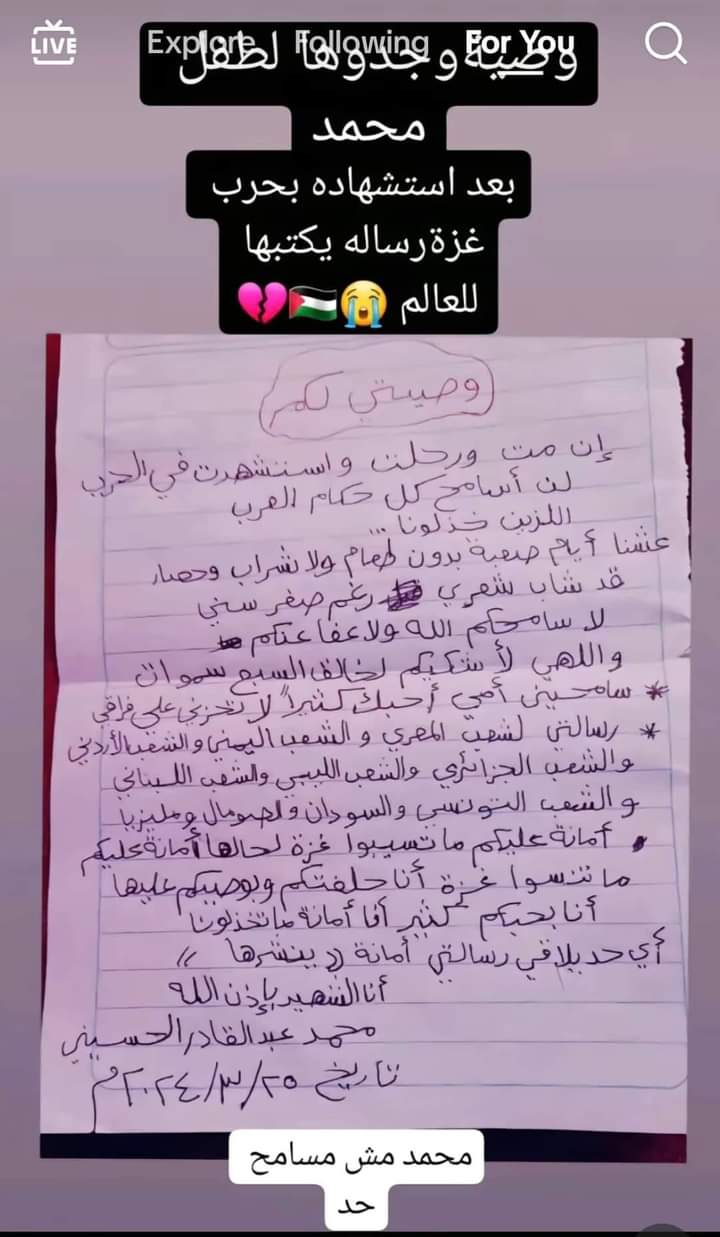 LIVE Explore Following For You
وصية وجدوها لطفل
محمد
بعد استشهاده بحرب
غزةرساله يكتبها
للعالم 😭🇵🇸💔
وصيتي لكم
إن مت ورحلت واستشهدت في الحرب
لن أسامح كل حكام العرب
اللزين خذلونا ...
عشنا أيام صعبة بدون طعام ولا شراب وحصار
قد شاب شعري رغم صغر سني
لا سامحكم الله ولا عفا عنكم
واللهي لأشكيكم لخالق السبع سموات
* سامحيني أمي أحبك كثيراً لا تحزني علي فراقي
* رسالتي لشعب المصري و الشعب اليمني والشعب الأردني
والشعب الجزائري والشعب الليبي والشعب اللبناني
والشعب التونسي والسودان ولصومال ومليزيا
أمانة عليكم ما تسيبوا غزة لحالها أمانة عليكم
ما تنسوا غزة أنا حلفتكم وبوصيكم عليها
أنا بحبكم كثير أنا أمانة ما تخذلونا
أي حد يلاقي رسالتي أمانة (( ينشرها ))
أنا الشهيد بإذن الله
محمد عبدالقادر الحسيني
تاريخ ٢٠٢٤/٣/٢٥م
محمد مش مسامح
حد